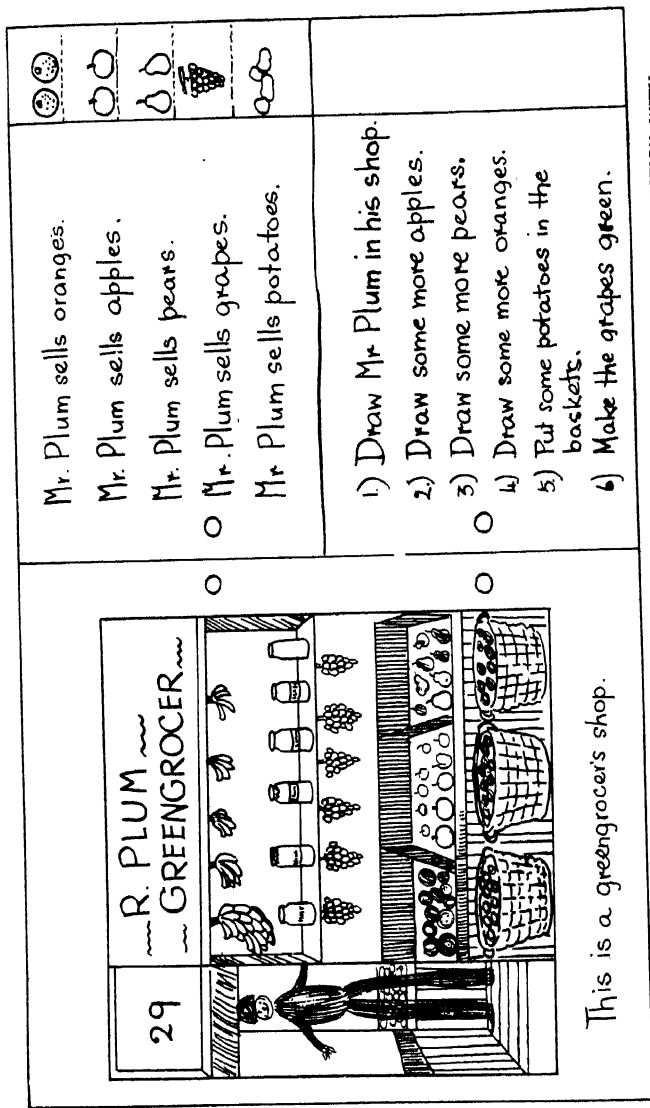 29
R. PLUM
GREENGROCER
This is a greengrocer's shop.
Mr. Plum sells oranges.
Mr. Plum sells apples.
Mr. Plum sells pears.
Mr. Plum sells grapes.
Mr Plum sells potatoes.
1.) Draw Mr Plum in his shop.
2.) Draw some more apples.
3.) Draw some more pears.
4.) Draw some more oranges.
5.) Put some potatoes in the
baskets.
6.) Make the grapes green.